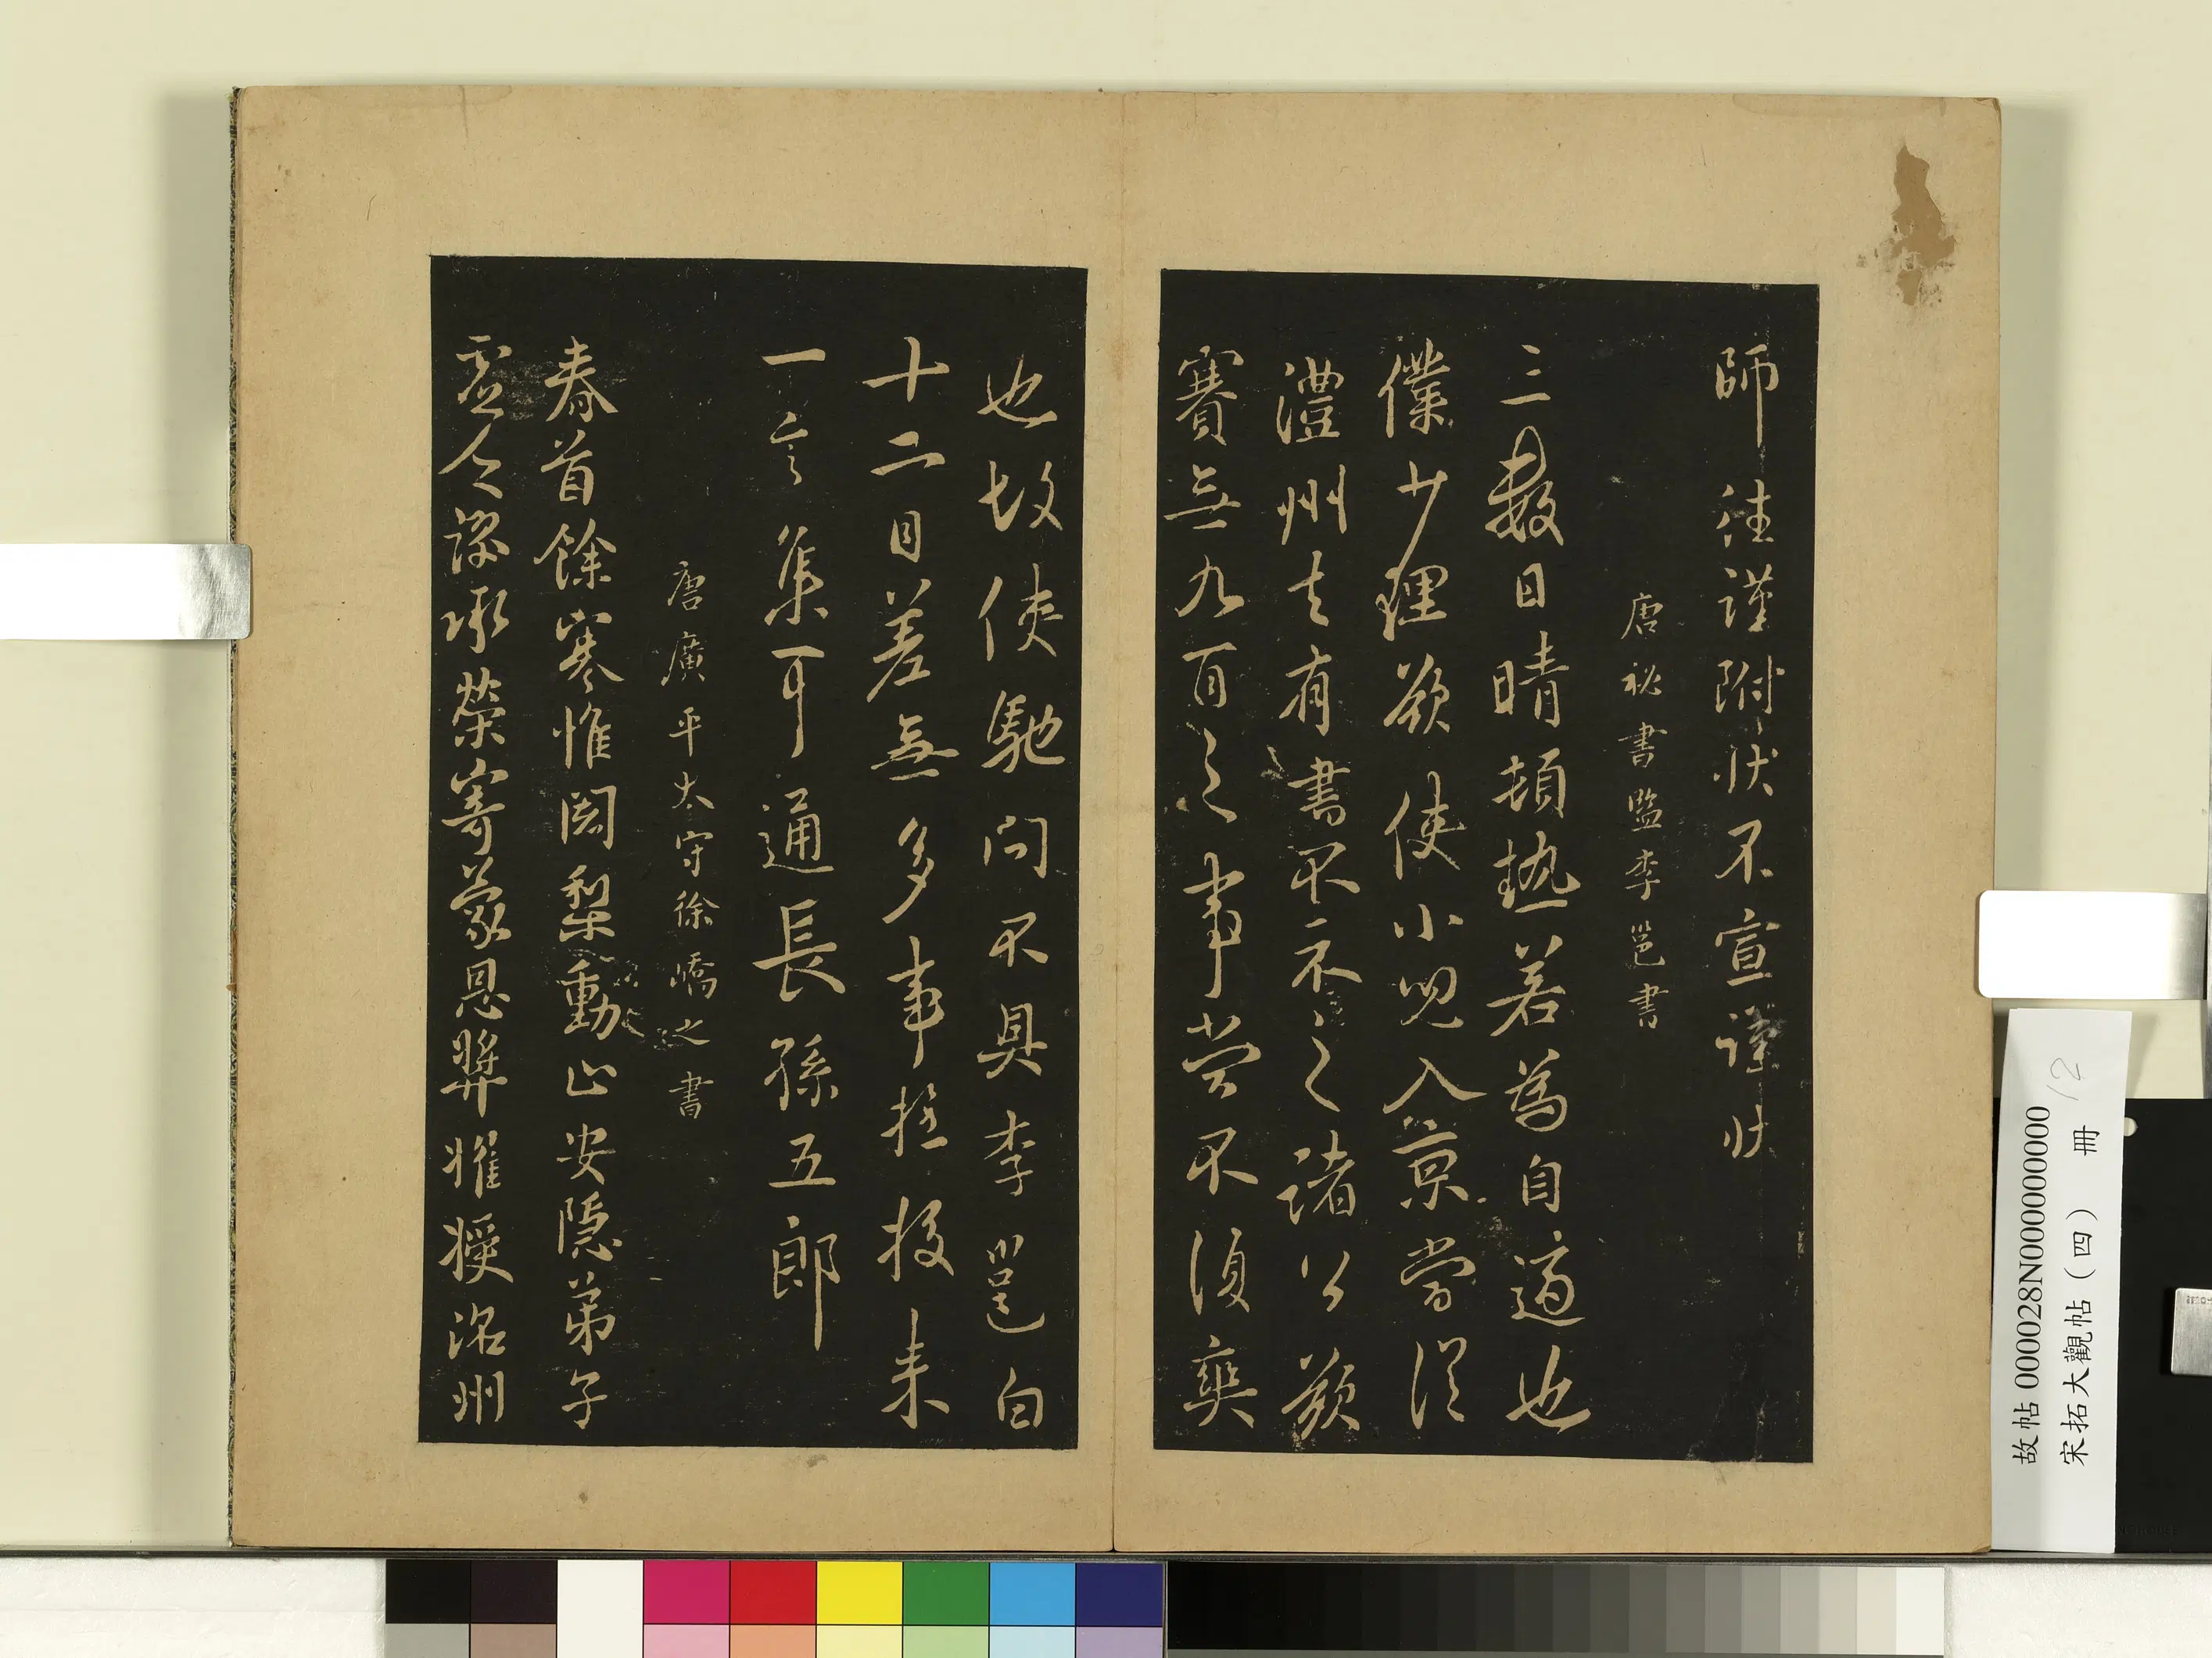 師往謹附狀不宣謹狀
唐秘書監李邕書
三數日晴頓熱若為自適也
僕少理欲使小兒入京當從
澧州去有書不示之諸公欲
賽無九百之事苦不須奭
也故使馳問不具李邕白
十二日差無多事拴掇未
一言集可通長孫五郎
唐廣平太守徐嶠之書
春首餘寒惟闍梨動止安隱弟子
虛乏謬承榮寄蒙恩獎擢授洺州
故帖 000028N000000000
宋拓大觀帖（四） 冊 12